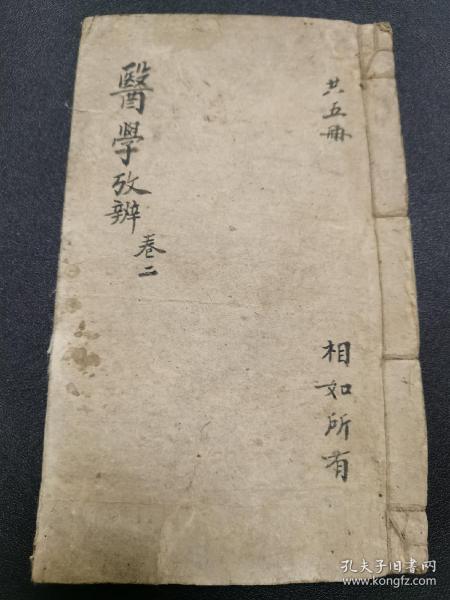 共五冊
相如所有
醫學攷辨
卷二
孔夫子旧书网
www.kongfz.com